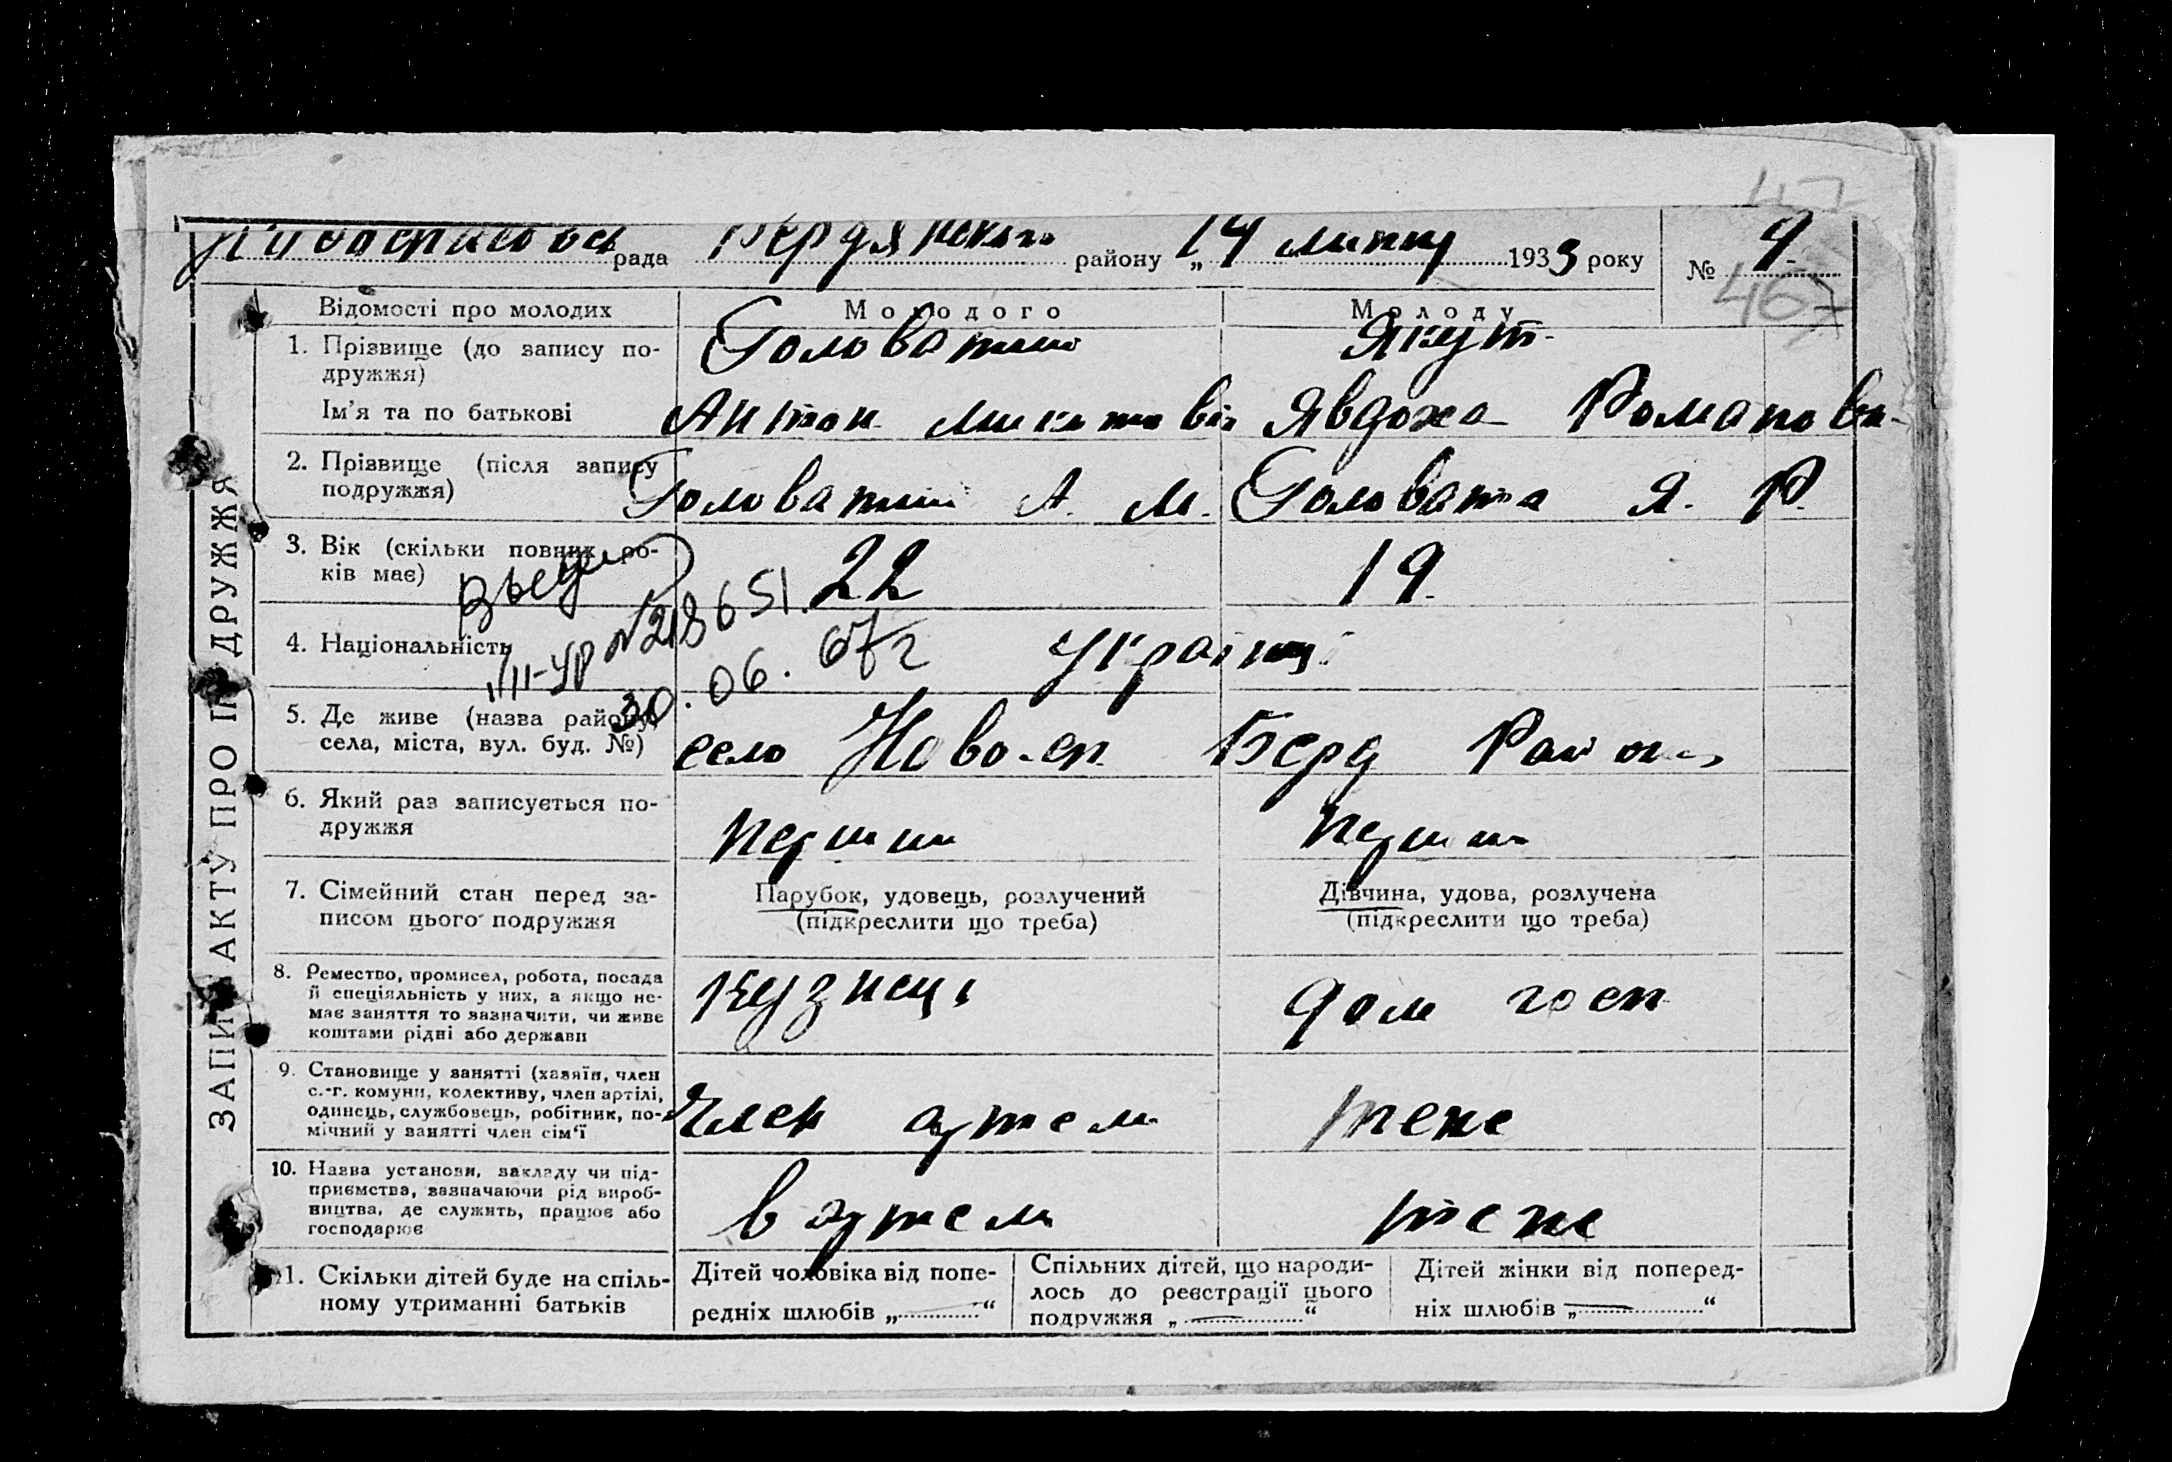 47
рада Бердянського району „14 1933 року № 9.
467
Відомості про молодих Молодого Молоду
1. Прізвище (до запису по- Головатий Якут
дружжя)
Ім'я та по батькові Антон Микитові Явдоха Романовн
2. Прізвище (після запису Головатий А. М. Головата Я. Р.
подружжя)
3. Вік (скільки повних ро- 22 19.
ків має)
№218651.
4. Національність Українці
30.06.67г
5. Де живе (назва району, село Новосп Берд Район
села, міста, вул. буд. №)
6. Який раз записується по- перший перший
дружжя
7. Сімейний стан перед за- Парубок, удовець, розлучений Дівчина, удова, розлучена
писом цього подружжя (підкреслити що треба) (підкреслити що треба)
8. Ремество, промисел, робота, посада Кузнець дом госп
й спеціяльність у них, а якщо не-
має заняття то зазначити, чи живе
коштами рідні або держави
9. Становище у занятті (хазяїн, член Член артели теж
с.-г. комуни, колективу, член артілі,
одинець, службовець, робітник, по-
мічний у занятті член сім'ї
10. Назва установи, закладу чи під- в артели теж
приємства, зазначаючи рід вироб-
ництва, де служить, працює або
господарює
11. Скільки дітей буде на спіль- Дітей чоловіка від попе- Спільних дітей, що народи- Дітей жінки від поперед-
ному утриманні батьків редніх шлюбів „—“ лось до реєстрації цього ніх шлюбів „—“
подружжя „—“
ЗАПИС АКТУ ПРО ПОДРУЖЖЯ